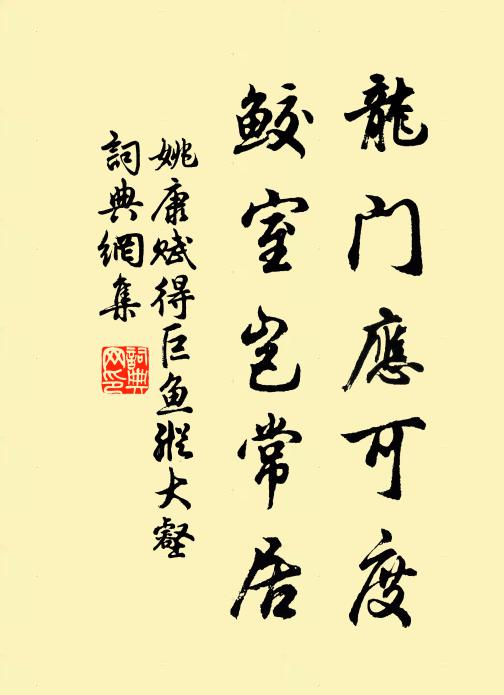 龍门應可度
鮫室岂常居
姚康赋得巨鱼縱大壑
詞典網集
詞典
网印